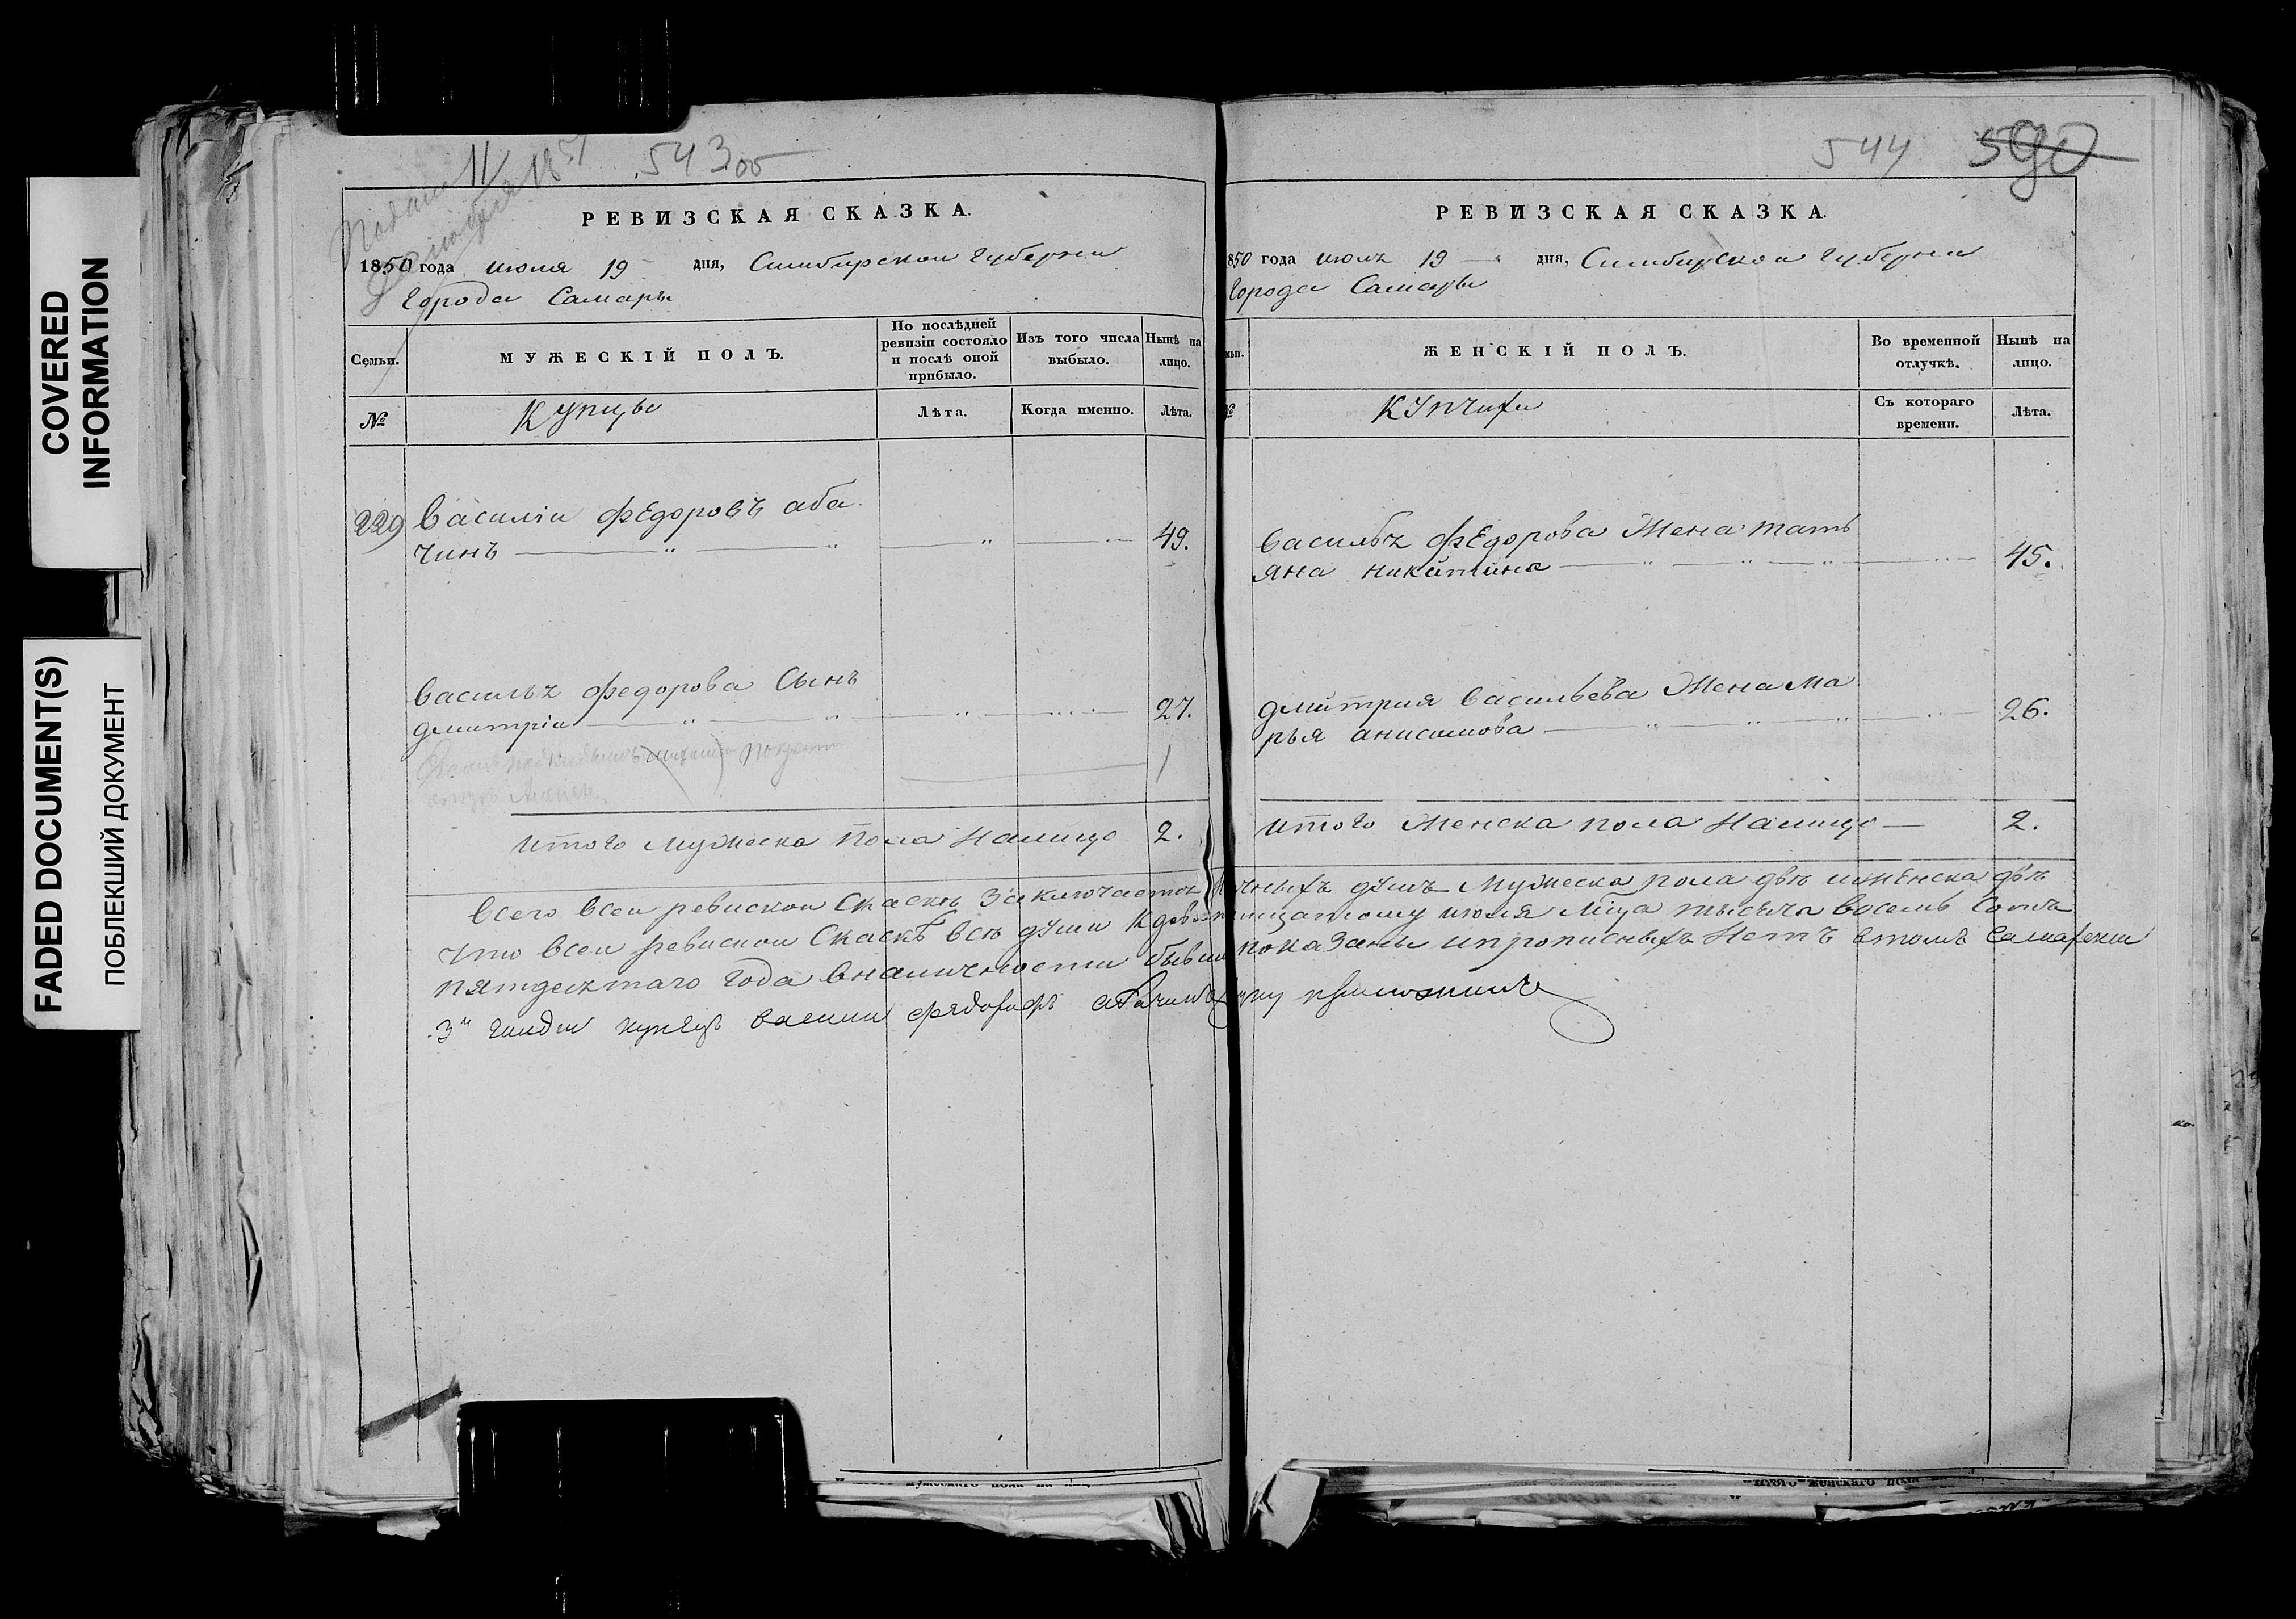 COVERED
INFORMATION
FADED DOCUMENT(S)
ПОБЛЕКШИЙ ДОКУМЕНТ
11
1851
543 об
РЕВИЗСКАЯ СКАЗКА.
1850 года июля 19 дня, Симбирской Губерни
Города Самары
Семьи.
МУЖЕСКІЙ ПОЛЪ.
По послѣдней
ревизіи состояло
и послѣ оной
прибыло.
Изъ того числа
выбыло.
Нынѣ на
лицо.
№
Купцы
Лѣта.
Когда именно.
Лѣта.
229 Василіи Федоровъ аба
чинъ 49.
Васильz Федорова Сынъ
дмитріи 27.
1
итого мужеска пола Налицо 2.
544 590
РЕВИЗСКАЯ СКАЗКА.
850 года июлz 19 дня, Симбирскои Губерни
Города Самары
ьи.
ЖЕНСКІЙ ПОЛЪ.
Во временной
отлучкѣ.
Нынѣ на
лицо.
№
Купчихи
Съ котораго
времени.
Лѣта.
Васильz Федорова Жена тать
яна никитина 45.
дмитрия Васильева Жена Ма
рья анисимова 26.
итого Женска пола Налицо 2.
Всего Всеи ревискои Скаскѣ Заключаетсz Личныхъ душъ Мужеска пола двѣ иженска двѣ
что Всеи ревискои Скаскѣ Всѣ души Кдевятнадцатому июля мца тысяча восемь Сотъ
пятдесzтаго Года Вналичности бывши показаны ипрописныхъ Нетъ Втомъ Самарски
3й гилди купецъ Васили Абачинъ руку приложилъ